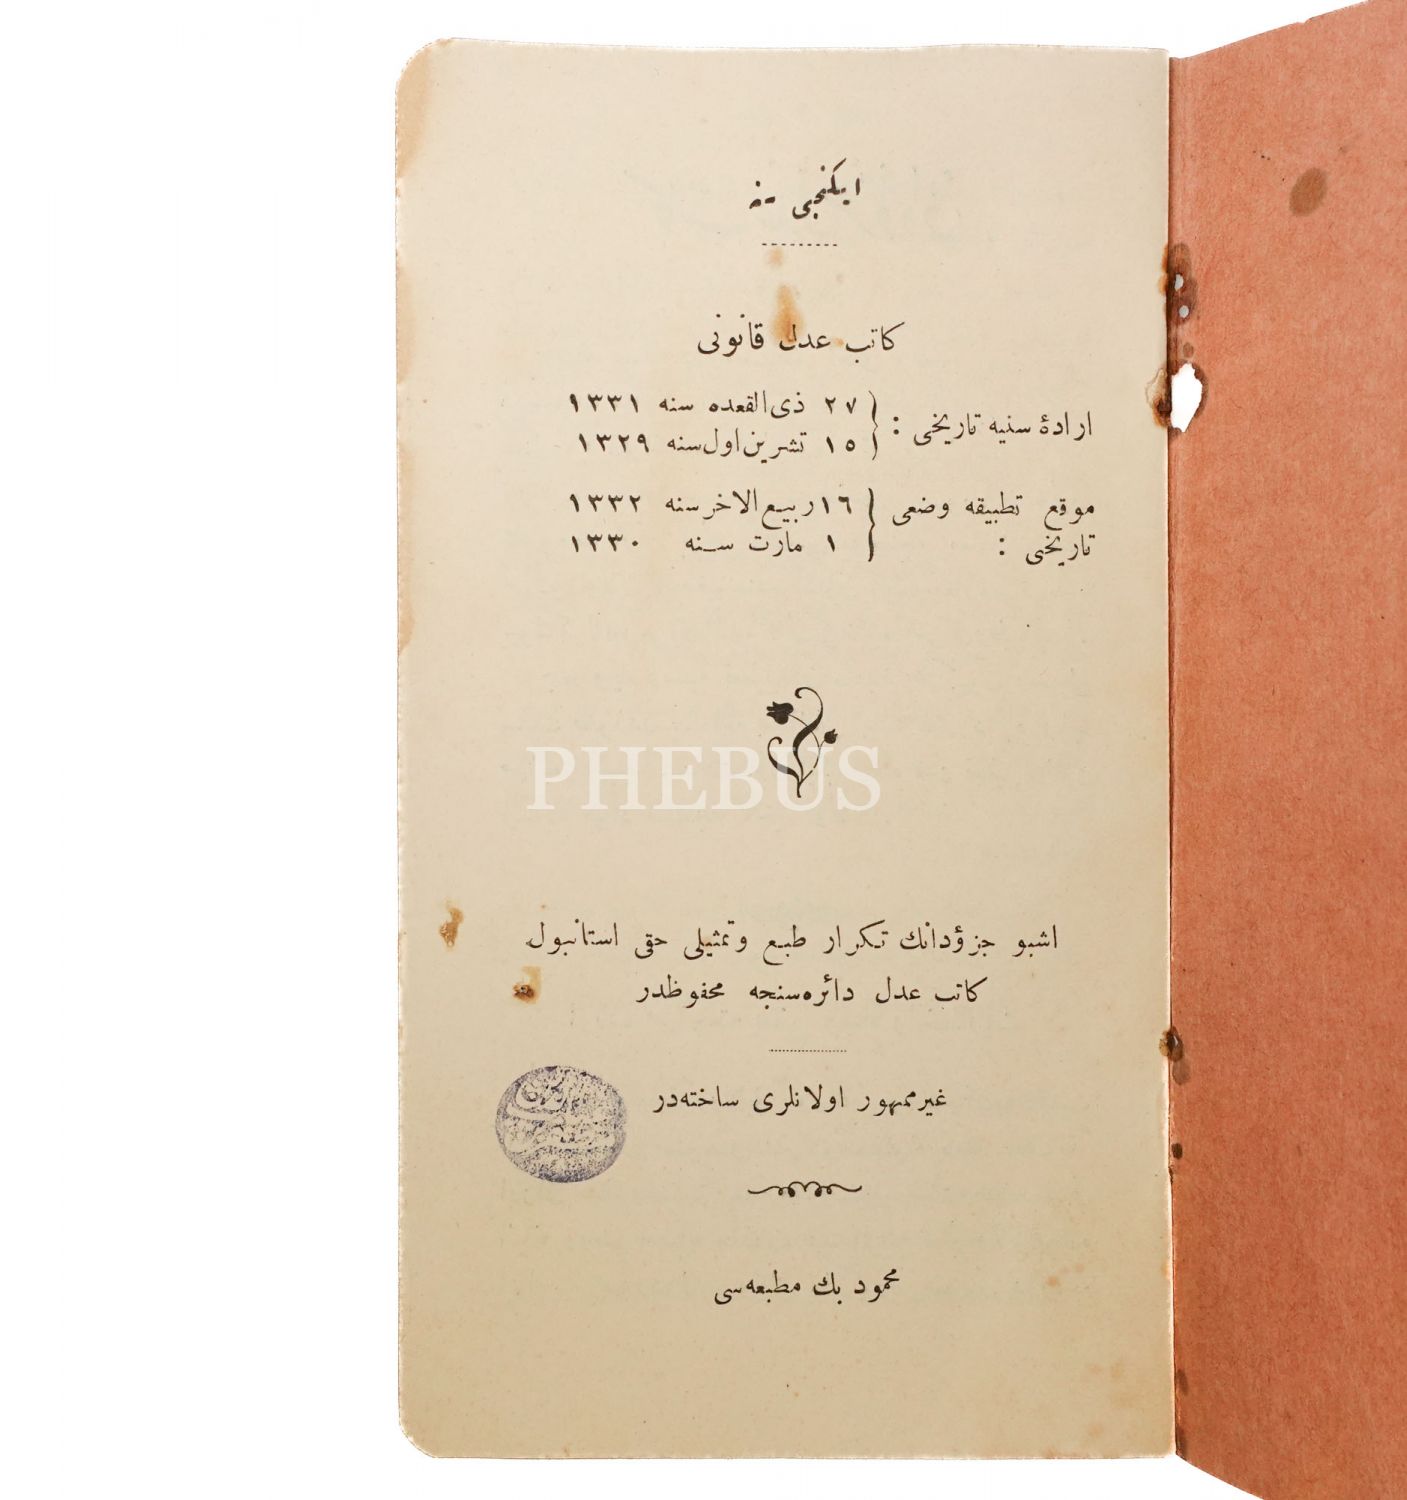 ایکنجی
کاتب عدل قانونی
ارادۀ سنیه تاریخی : { ٢٧ ذی‌القعده سنه ١٣٣١
١٥ تشرین‌اول‌سنه ١٣٢٩
موقع تطبیقه وضعی { ١٦ ربیع‌الاخر سنه ١٣٣٢
تاریخی : ١ مارت سنه ١٣٣٠
PHEBUS
اشبو جزؤدانك تکرار طبع وتمثیلی حقی استانبول
کاتب عدل دائره‌سنجه محفوظدر
غیرممهور اولانلری ساخته‌در
محمود بك مطبعه‌سی